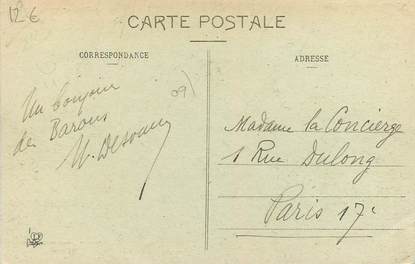 12€
CARTE POSTALE
CORRESPONDANCE
ADRESSE
Un bonjour
des Barons
09
Madame la Concierge
1 Rue Dulong
Paris 17e